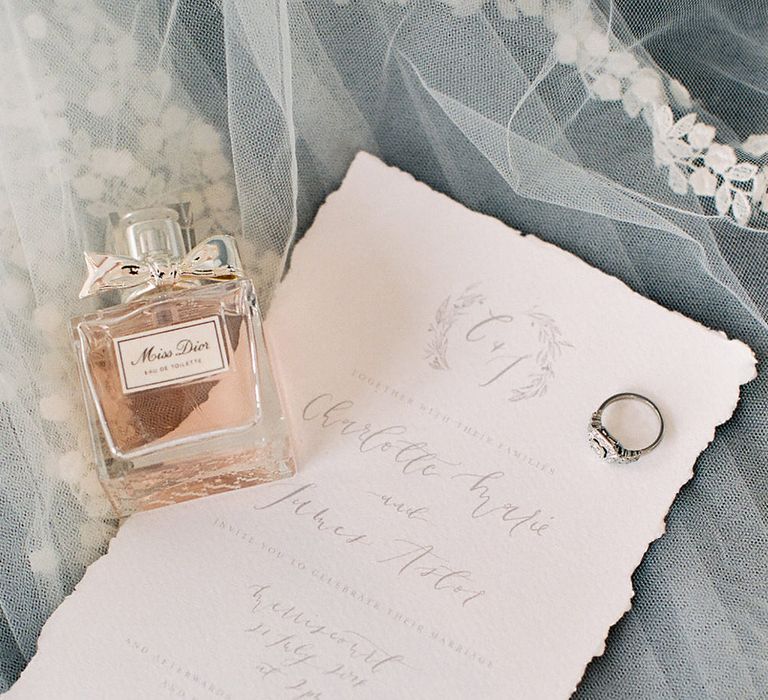 Miss Dior
EAU DE TOILETTE
C + J
TOGETHER WITH THEIR FAMILIES
Charlotte Marie
and
James Aston
INVITE YOU TO CELEBRATE THEIR MARRIAGE
21 July 2018
at 2pm
AND AFTERWARDS